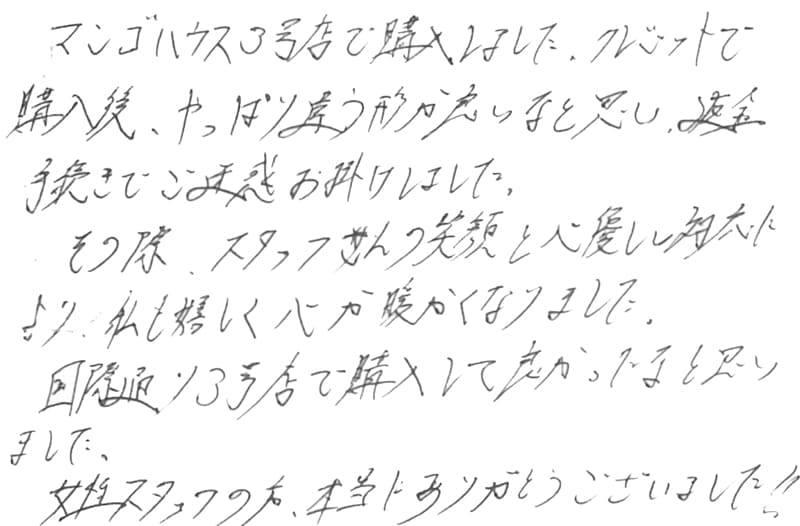 マンゴハウス3号店で購入しました。クレジットで
購入後、やっぱり違う形が良いなと思い、返金
手続きでご迷惑お掛けしました。
その際、スタッフさんの笑顔と心優しい対応に
より、私も嬉しく心が暖かくなりました。
国際通り3号店で購入して良かったなと思い
ました。
女性スタッフの方、本当にありがとうございました!!